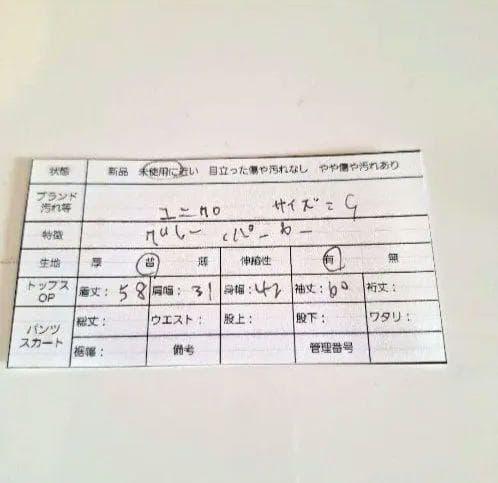 状態 新品 未使用に近い 目立った傷や汚れなし やや傷や汚れあり
ブランド
汚れ等 ユニクロ サイズ=G
特徴 グレー パーカー
生地 厚 普 薄 伸縮性 有 無
トップス
OP 着丈:58 肩幅:31 身幅:42 袖丈:60 裄丈:
パンツ
スカート 総丈: ウエスト: 股上: 股下: ワタリ:
裾幅: 備考 管理番号